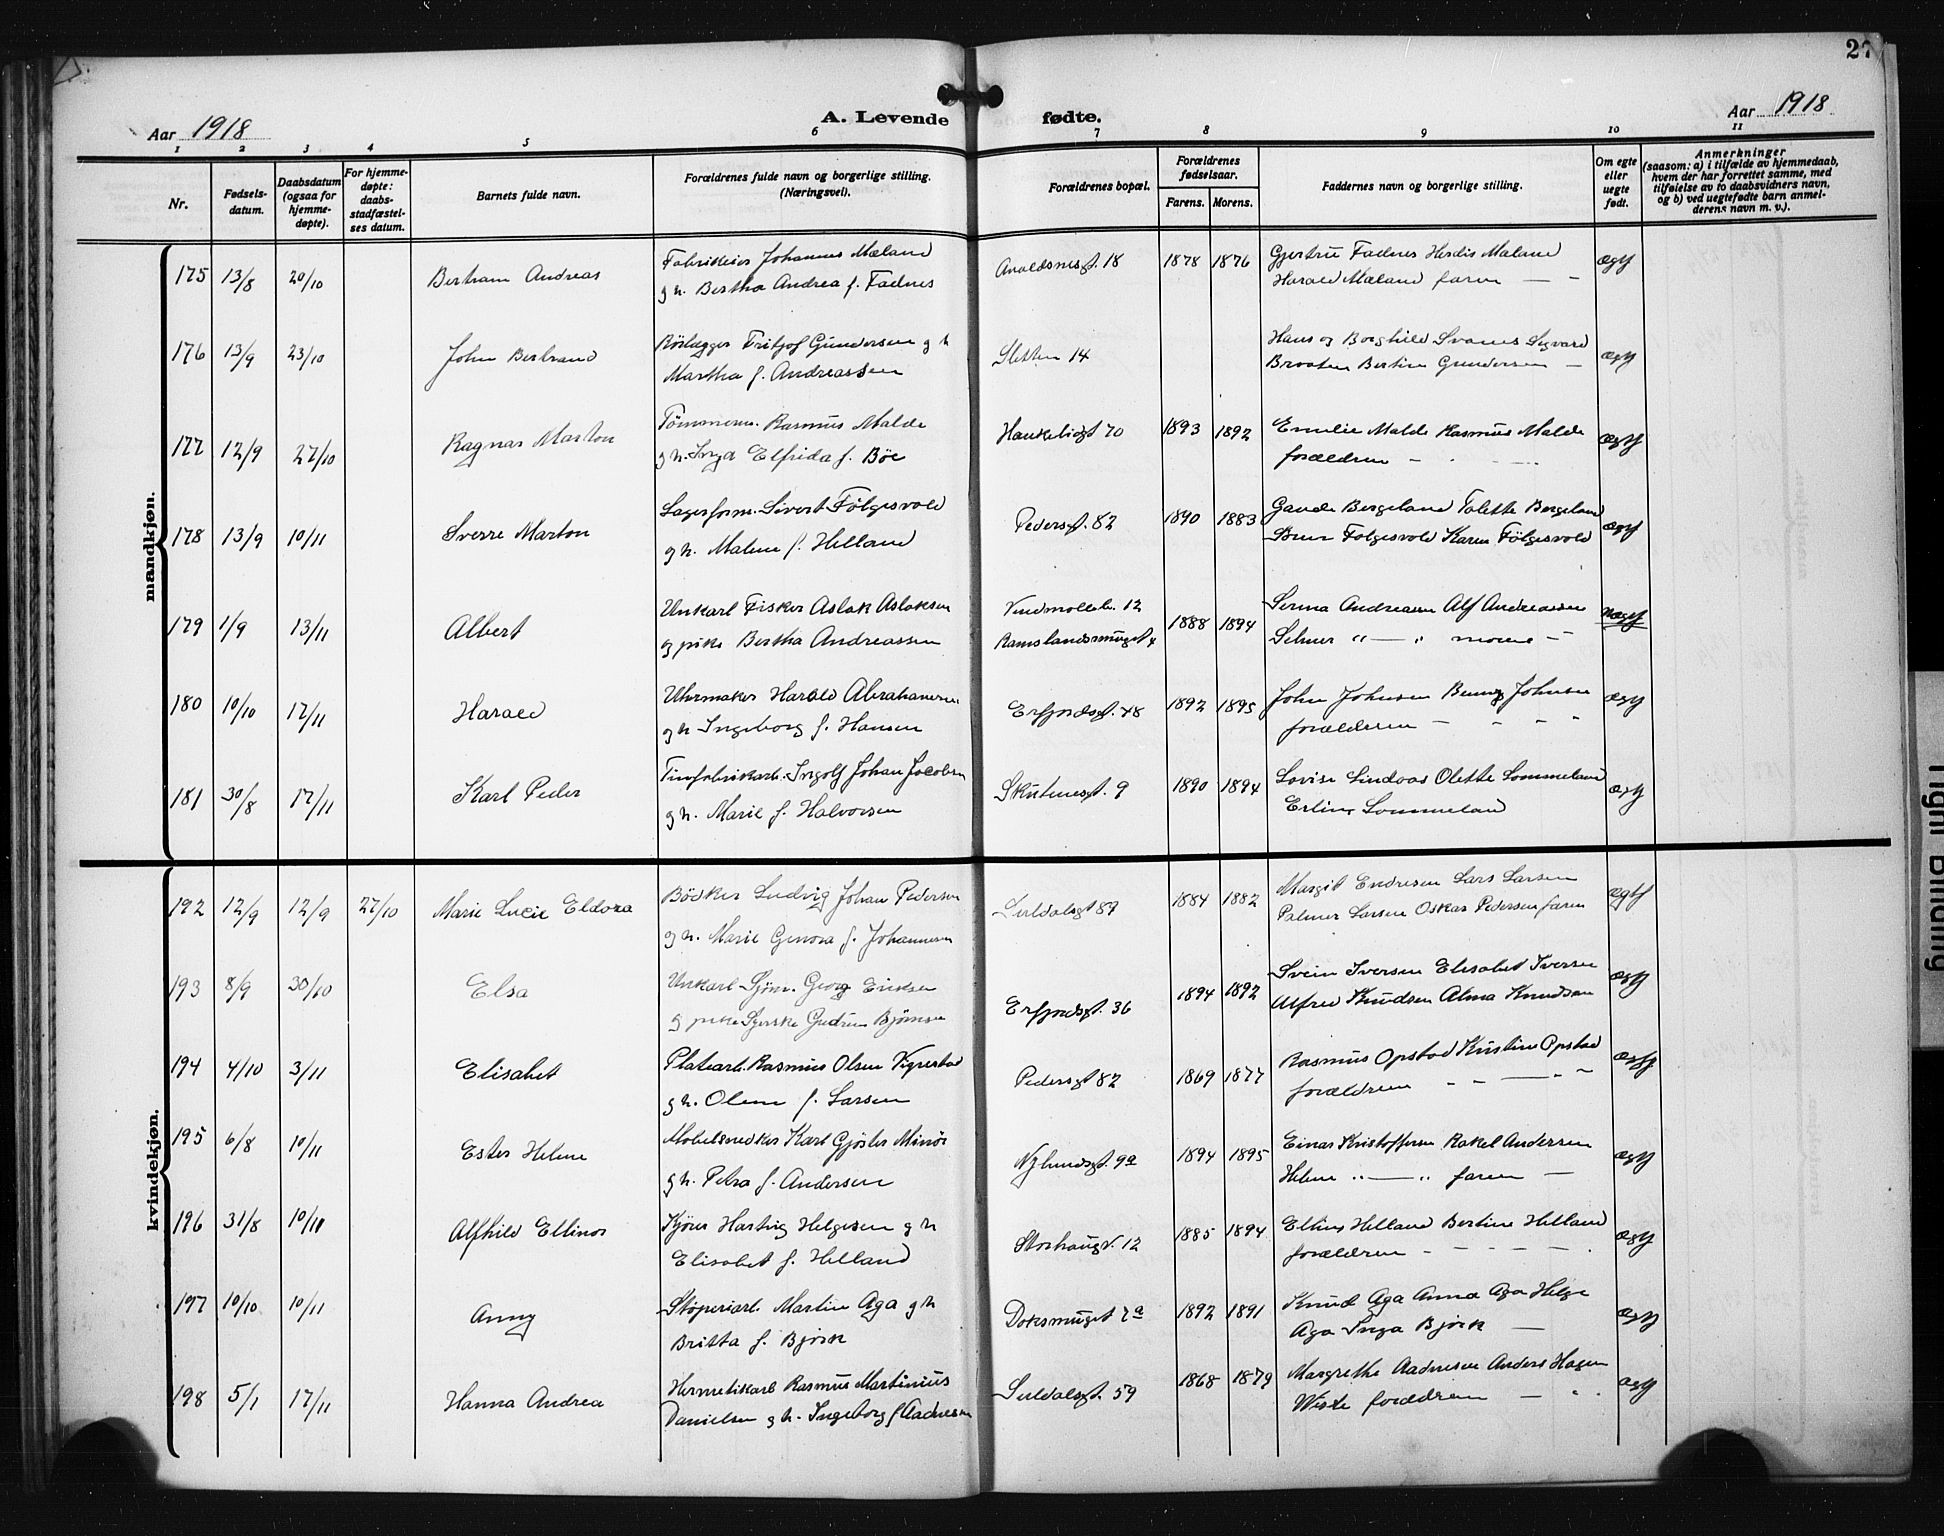 27
Aar 1918
A. Levende fødte.
Aar 1918
1 2 3 4 5 6 7 8 9 10 11
Nr.
Fødsels-
datum.
Daabsdatum
(ogsaa for
hjemme-
døpte).
For hjemme-
døpte:
daabs-
stadfæstel-
ses datum.
Barnets fulde navn.
Forældrenes fulde navn og borgerlige stilling.
(Næringsvei).
Forældrenes bopæl.
Forældrenes
fødselsaar.
Farens. Morens.
Faddernes navn og borgerlige stilling.
Om egte
eller
uegte
født.
Anmerkninger
(saasom: a) i tilfælde av hjemmedaab,
hvem der har forrettet samme, med
tilføielse av to daabsvidners navn,
og b) ved uegtefødte barn anmel-
derens navn m. v.).
mandkjøn.
175 13/8 20/10 Bertram Andreas Johannes Mæland Avaldsnesgt. 18 1878 1876 Gjertru Fadnes Herdis Mæland ægte
g h. Bertha Andrea f. Fadnes Harald Mæland faren
176 13/9 23/10 John Bertrand Rörlægger Fritjof Gundersen g h Sletten 14 Hans og Borghild Svanes Sigvard ægte
Martha f. Andreassen Braaten Bertine Gundersen
177 12/9 27/10 Ragnar Marton Tömmerm. Rasmus Malde Haukeligt 70 1893 1892 Emelie Malde Rasmus Malde ægte
g h. Inga Elfrida f. Böe forældren
178 13/9 10/11 Sverre Marton Lagerform. Sivert Fölgesvold Pedersgt. 82 1890 1883 Gaude Bergeland Tolette Bergeland ægte
g h. Malene f. Helland Fölgesvold Karen Fölgesvold
179 1/9 13/11 Albert Unkarl Fisker Aslak Aslaksen Vindmølleb. 12 1888 1894 Serina Andreassen Alf Andreassen uægt
og pike Bertha Andreassen Ramslandsmuget 4 Selmer " — " moren
180 10/10 17/11 Harald Uhrmaker Harald Abrahamsen Erfjordsgt. 48 1892 1895 John Johnsen Benny Johnsen ægt
g h Ingeborg f. Hansen forældren
181 30/8 17/11 Karl Peder Tinfabrikarb. Ingolf Johan Jacobsen Skutenesgt. 9 1890 1894 Lovise Lindaas Olette Sommeland ægt
g h. Marie f. Halvorsen Erling Sommeland
kvindekjøn.
192 12/9 12/9 27/10 Marie Lucie Eldora Bödker Ludvig Johan Pedersen Suldalsgt 89 1884 1882 Margit Endresen Lars Larsen ægte
g h. Marie Genora f. Johannesen Palmer Larsen Oskar Pedersen faren
193 8/9 30/10 Elsa Unkarl Sjöm. Georg Eriksen Erfjordsgt. 36 1894 1892 Svein Iversen Elisabet Iversen ægt
g pike Syerske Gudrun Björnsen Alfred Knudsen Alma Knudsen
194 4/10 3/11 Elisabet Platearb. Rasmus Olsen Vigrestad Pedersgt 82 1869 1877 Rasmus Opstad Kristine Opstad ægt
g h. Olene f. Larsen forældren
195 6/8 10/11 Ester Helene Möbelsnedker Karl Gjöster Minös Nylundsgt. 9a 1894 1895 Einar Kristoffersen Rakel Andersen ægt
g h. Petra f. Andersen Helene " — " faren
196 31/8 10/11 Alfhild Ellinor Kjörer Hartvig Helgesen g h Storhaugv. 12 1885 1894 Elling Helland Bertine Helland ægt
Elisabet f. Helland forældren
197 10/10 10/11 Anny Støperiarb. Martin Aga g h Doksmuget 2a 1892 1891 Knud Aga Anna Aga Helge ægt
Britta f. Björk Aga Inga Björk
198 5/1 17/11 Hanna Andrea Hermetikarb Rasmus Martinius Suldalsgt. 59 1868 1879 Margrethe Aadnesen Anders Hagen ægt
Danielsen g h. Ingeborg f. Aadnesen Wiste forældren